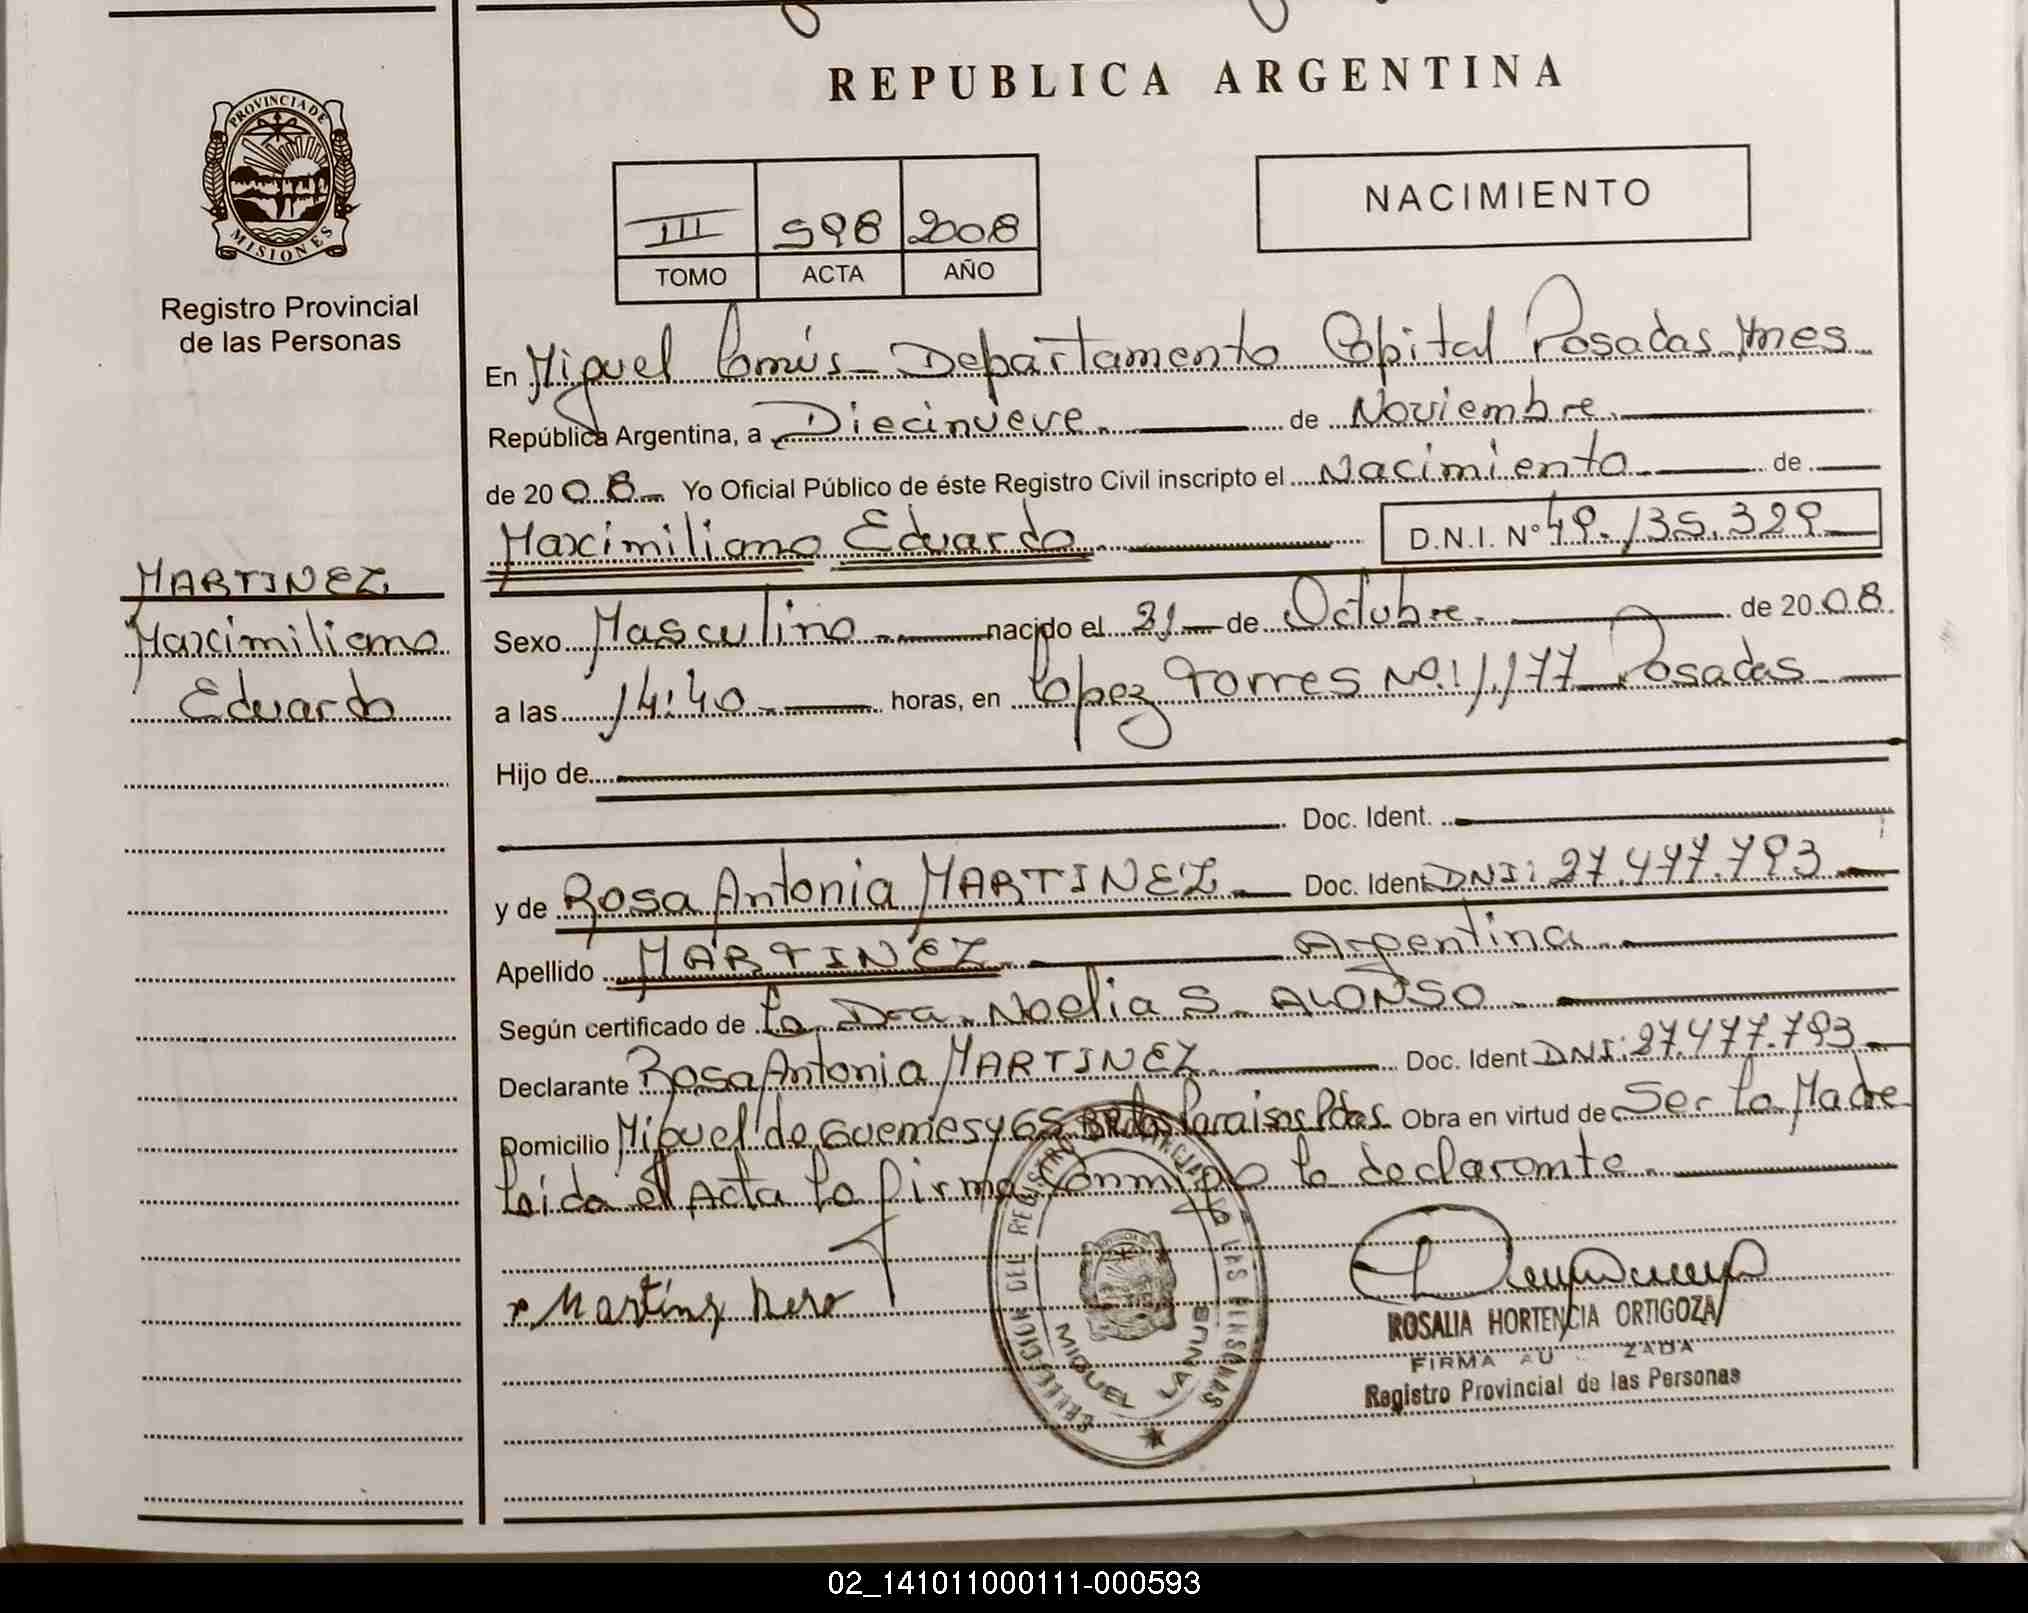 REPUBLICA ARGENTINA
PROVINCIA DE
MISIONES
Registro Provincial
de las Personas
NACIMIENTO
III 598 2008
TOMO ACTA AÑO
En Miguel Lanús - Departamento Capital Posadas Mnes
República Argentina, a Diecinueve de Noviembre
de 2008 Yo Oficial Público de éste Registro Civil inscripto el Nacimiento de
Maximiliano Eduardo D.N.I. Nº 49.135.329
MARTINEZ
Maximiliano
Eduardo
Sexo Masculino nacido el 31 de Octubre de 2008
a las 14:40 horas, en Lopez Torres Nº: 1.177 Posadas
Hijo de
Doc. Ident.
y de Rosa Antonia MARTINEZ Doc. Ident DNI: 27.477.793
Apellido MARTINEZ Argentina
Según certificado de La Dra. Noelia S. ALONSO
Declarante Rosa Antonia MARTINEZ Doc. Ident DNI: 27.477.793
Domicilio Miguel de Guemes y 65 Paraisos Pdas. Obra en virtud de Ser La Madre
Leída el Acta La firma Conmigo la declarante
ROSALIA HORTENCIA ORTIGOZA
FIRMA AU ZADA
Registro Provincial de las Personas
DEL REGISTRO LAS PERSONAS
MIGUEL LANUS
02_141011000111-000593